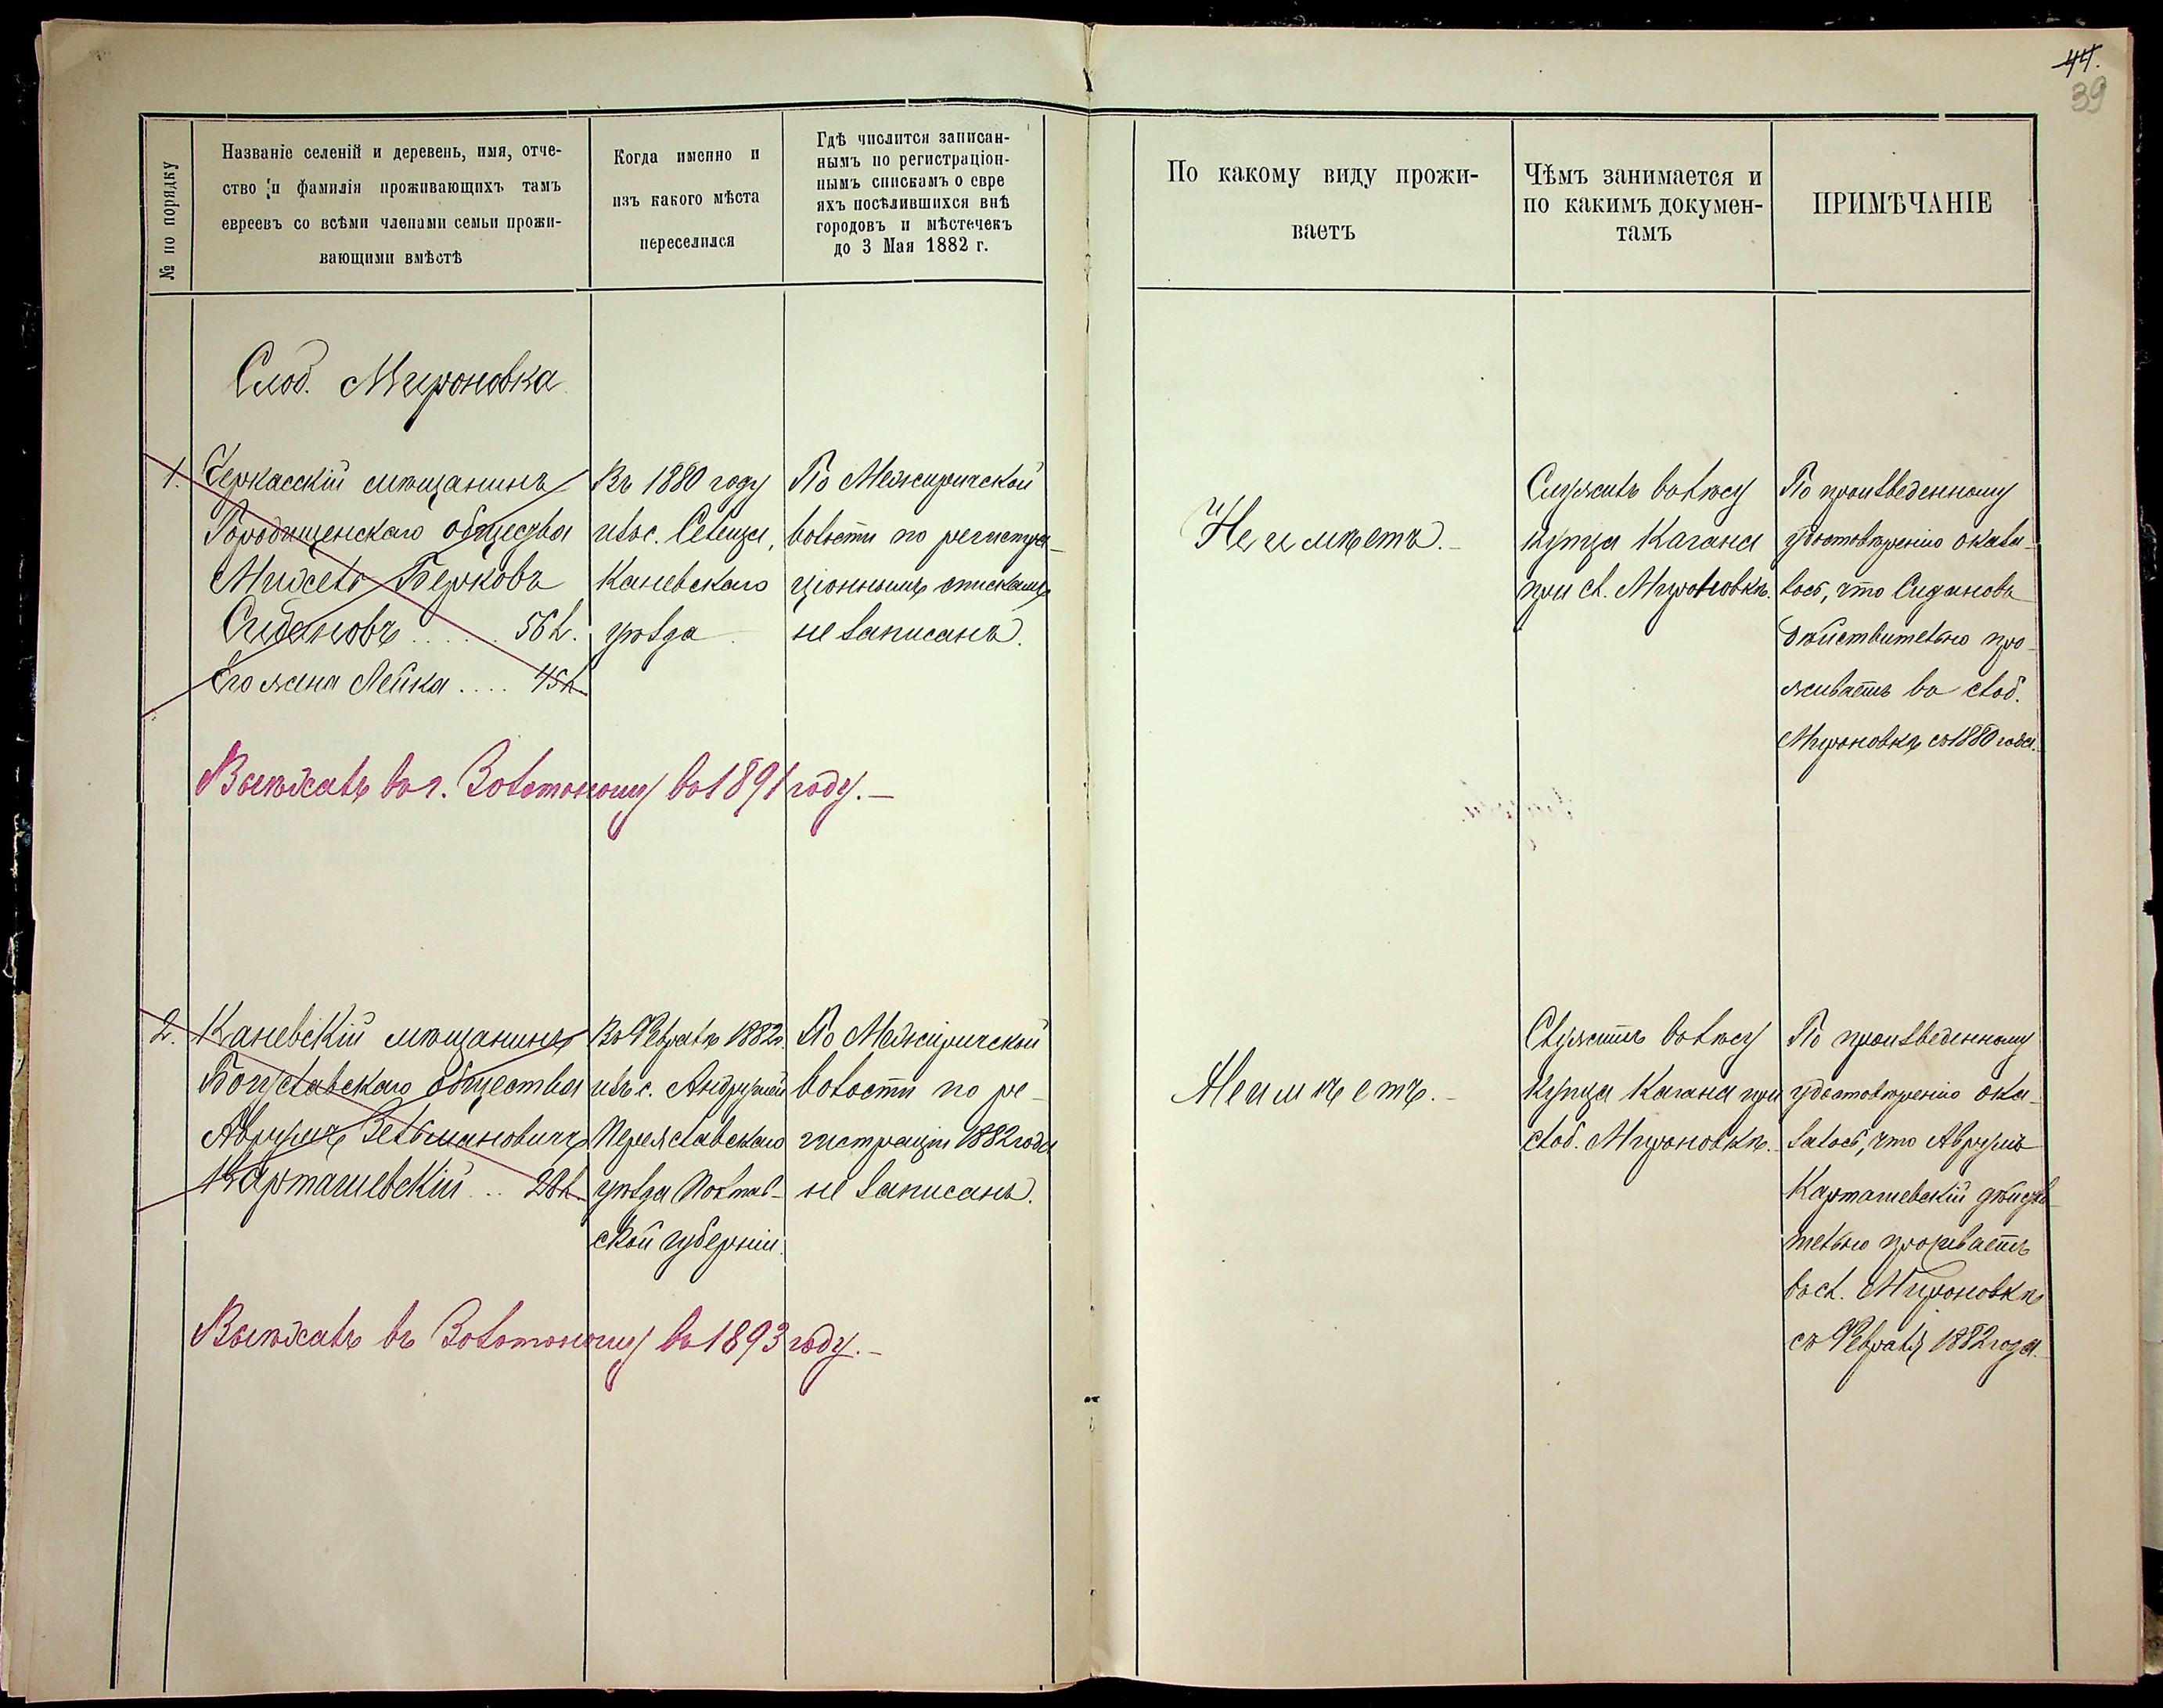 44.
39
№ по порядку
Названіе селеній и деревень, имя, отче-
ство и фамилія проживающихъ тамъ
евреевъ со всѣми членами семьи прожи-
вающими вмѣстѣ
Когда именно и
изъ какого мѣста
переселился
Гдѣ числится записан-
нымъ по регистраціон-
нымъ спискамъ о евре
яхъ посѣлившихся внѣ
городовъ и мѣстечекъ
до 3 Мая 1882 г.
По какому виду прожи-
ваетъ
Чѣмъ занимается и
по какимъ докумен-
тамъ
ПРИМѢЧАНІЕ
Слод. Мироновка
1.
Черкасскій мѣщанинъ
Городищенскаго общества
Берковъ
56 л.
Его жена Лейка .... 45 л.
Въ 1880 году
изъ с. Селища,
Каневскаго
уѣзда
По Межиричской
волости по регистра-
ціоннымъ спискамъ
не записанъ.
Не имѣетъ.-
Служитъ въ лѣсу
купца Кагана
при сл. Мироновкѣ.
По произведенному
удостовѣренію оказа-
лось, что Сидановъ
дѣйствительно про-
живаетъ въ слоб.
Мироновкѣ съ 1880 года.
Выѣхалъ въ г. Золотоношу въ 1891 году.-
2.
Каневскій мѣщанинъ
Богуславскаго общества
Аврумъ Зельмановичъ
Карташевскій .. 28 л.
Въ Февралѣ 1882 г.
изъ с. Андрушей
Переяславскаго
уѣзда Полтав-
ской губерніи.
По Межиричской
волости по ре-
гистраціи 1882 года
не записанъ.
Не имѣетъ.-
Служитъ въ лѣсу
купца Кагана при
слоб. Мироновкѣ.-
По произведенному
удостовѣренію ока-
залось, что Аврумъ
Карташевскій дѣйстви-
тельно проживаетъ
въ сл. Мироновкѣ
съ Февраля 1882 года.
Выѣхалъ въ Золотоношу въ 1893 году.-